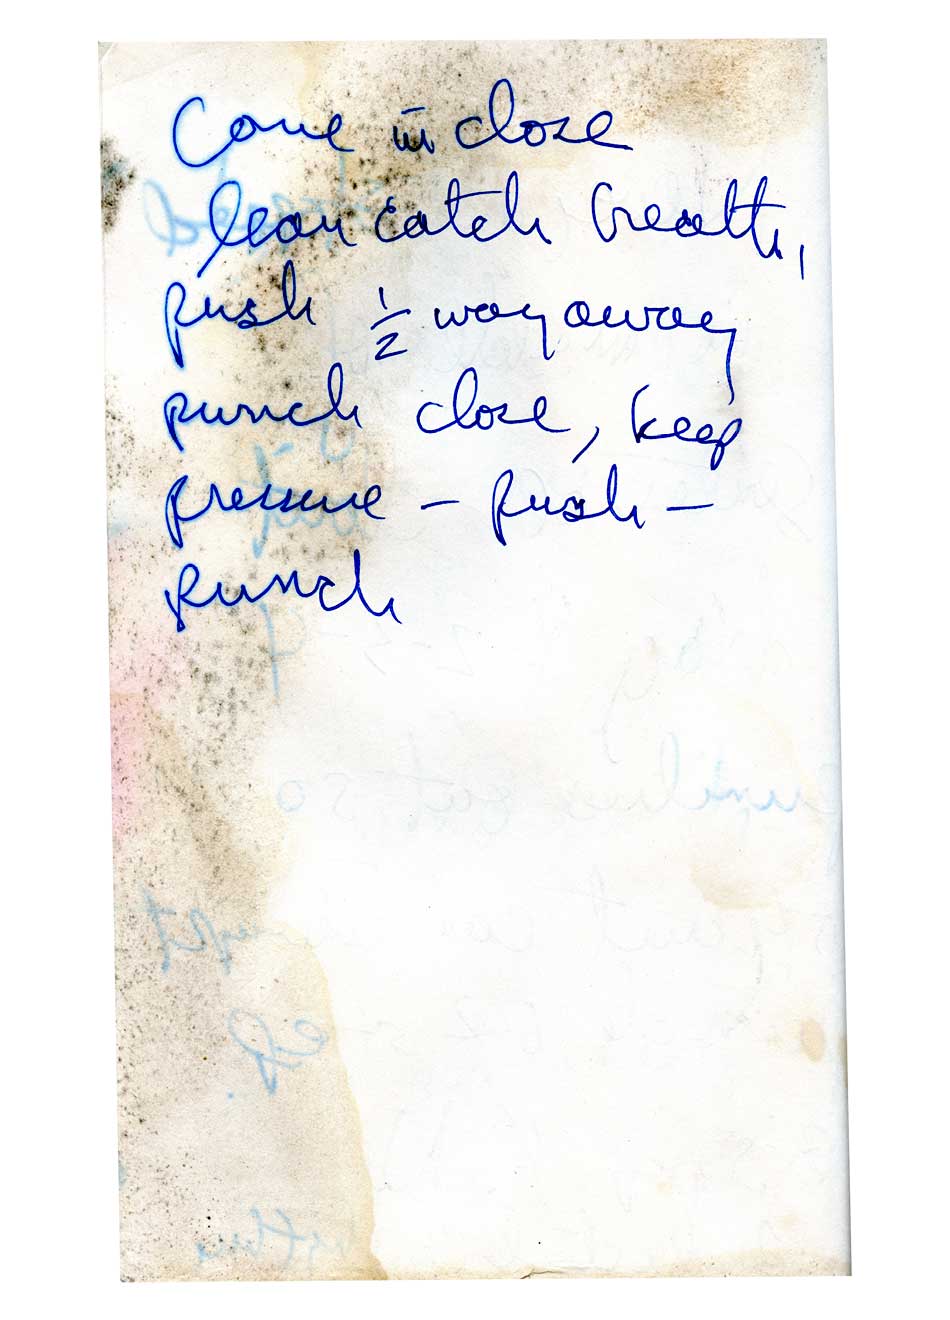 Come in close
lean catch breath,
push ½ way away
punch close, keep
pressure – push –
punch